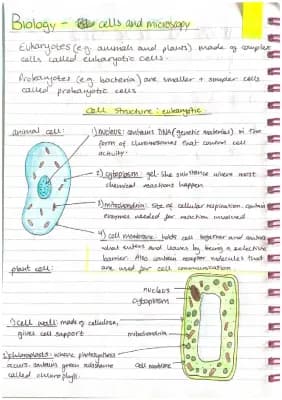 Biology - cells and microscopy
Eukaryotes (e.g. animals and plants) made of complex
cells called eukaryotic cells.
Prokaryotes (e.g. bacteria) are smaller + simpler cells
called prokaryotic cells
cell structure: eukaryotic.
animal cell:
1) nucleus: contains DNA (genetic material) in the
form of chromosomes that control cell
activity.
2) cytoplasm: gel-like substance where most
chemical reactions happen
3) mitochondria: site of cellular respiration. contain
enzymes needed for reaction involved
4) cell membrane: holds cell together and controls
what enters and leaves by being a selective
barrier. Also contain receptor molecules that
are used for cell communication.
plant cell:
nucleus
cytoplasm
1) cell wall: made of cellulose,
gives cell support
mitochondria
chloroplasts: where photosynthesis
occurs, contains green substance
called chlorophyll.
cell membrane